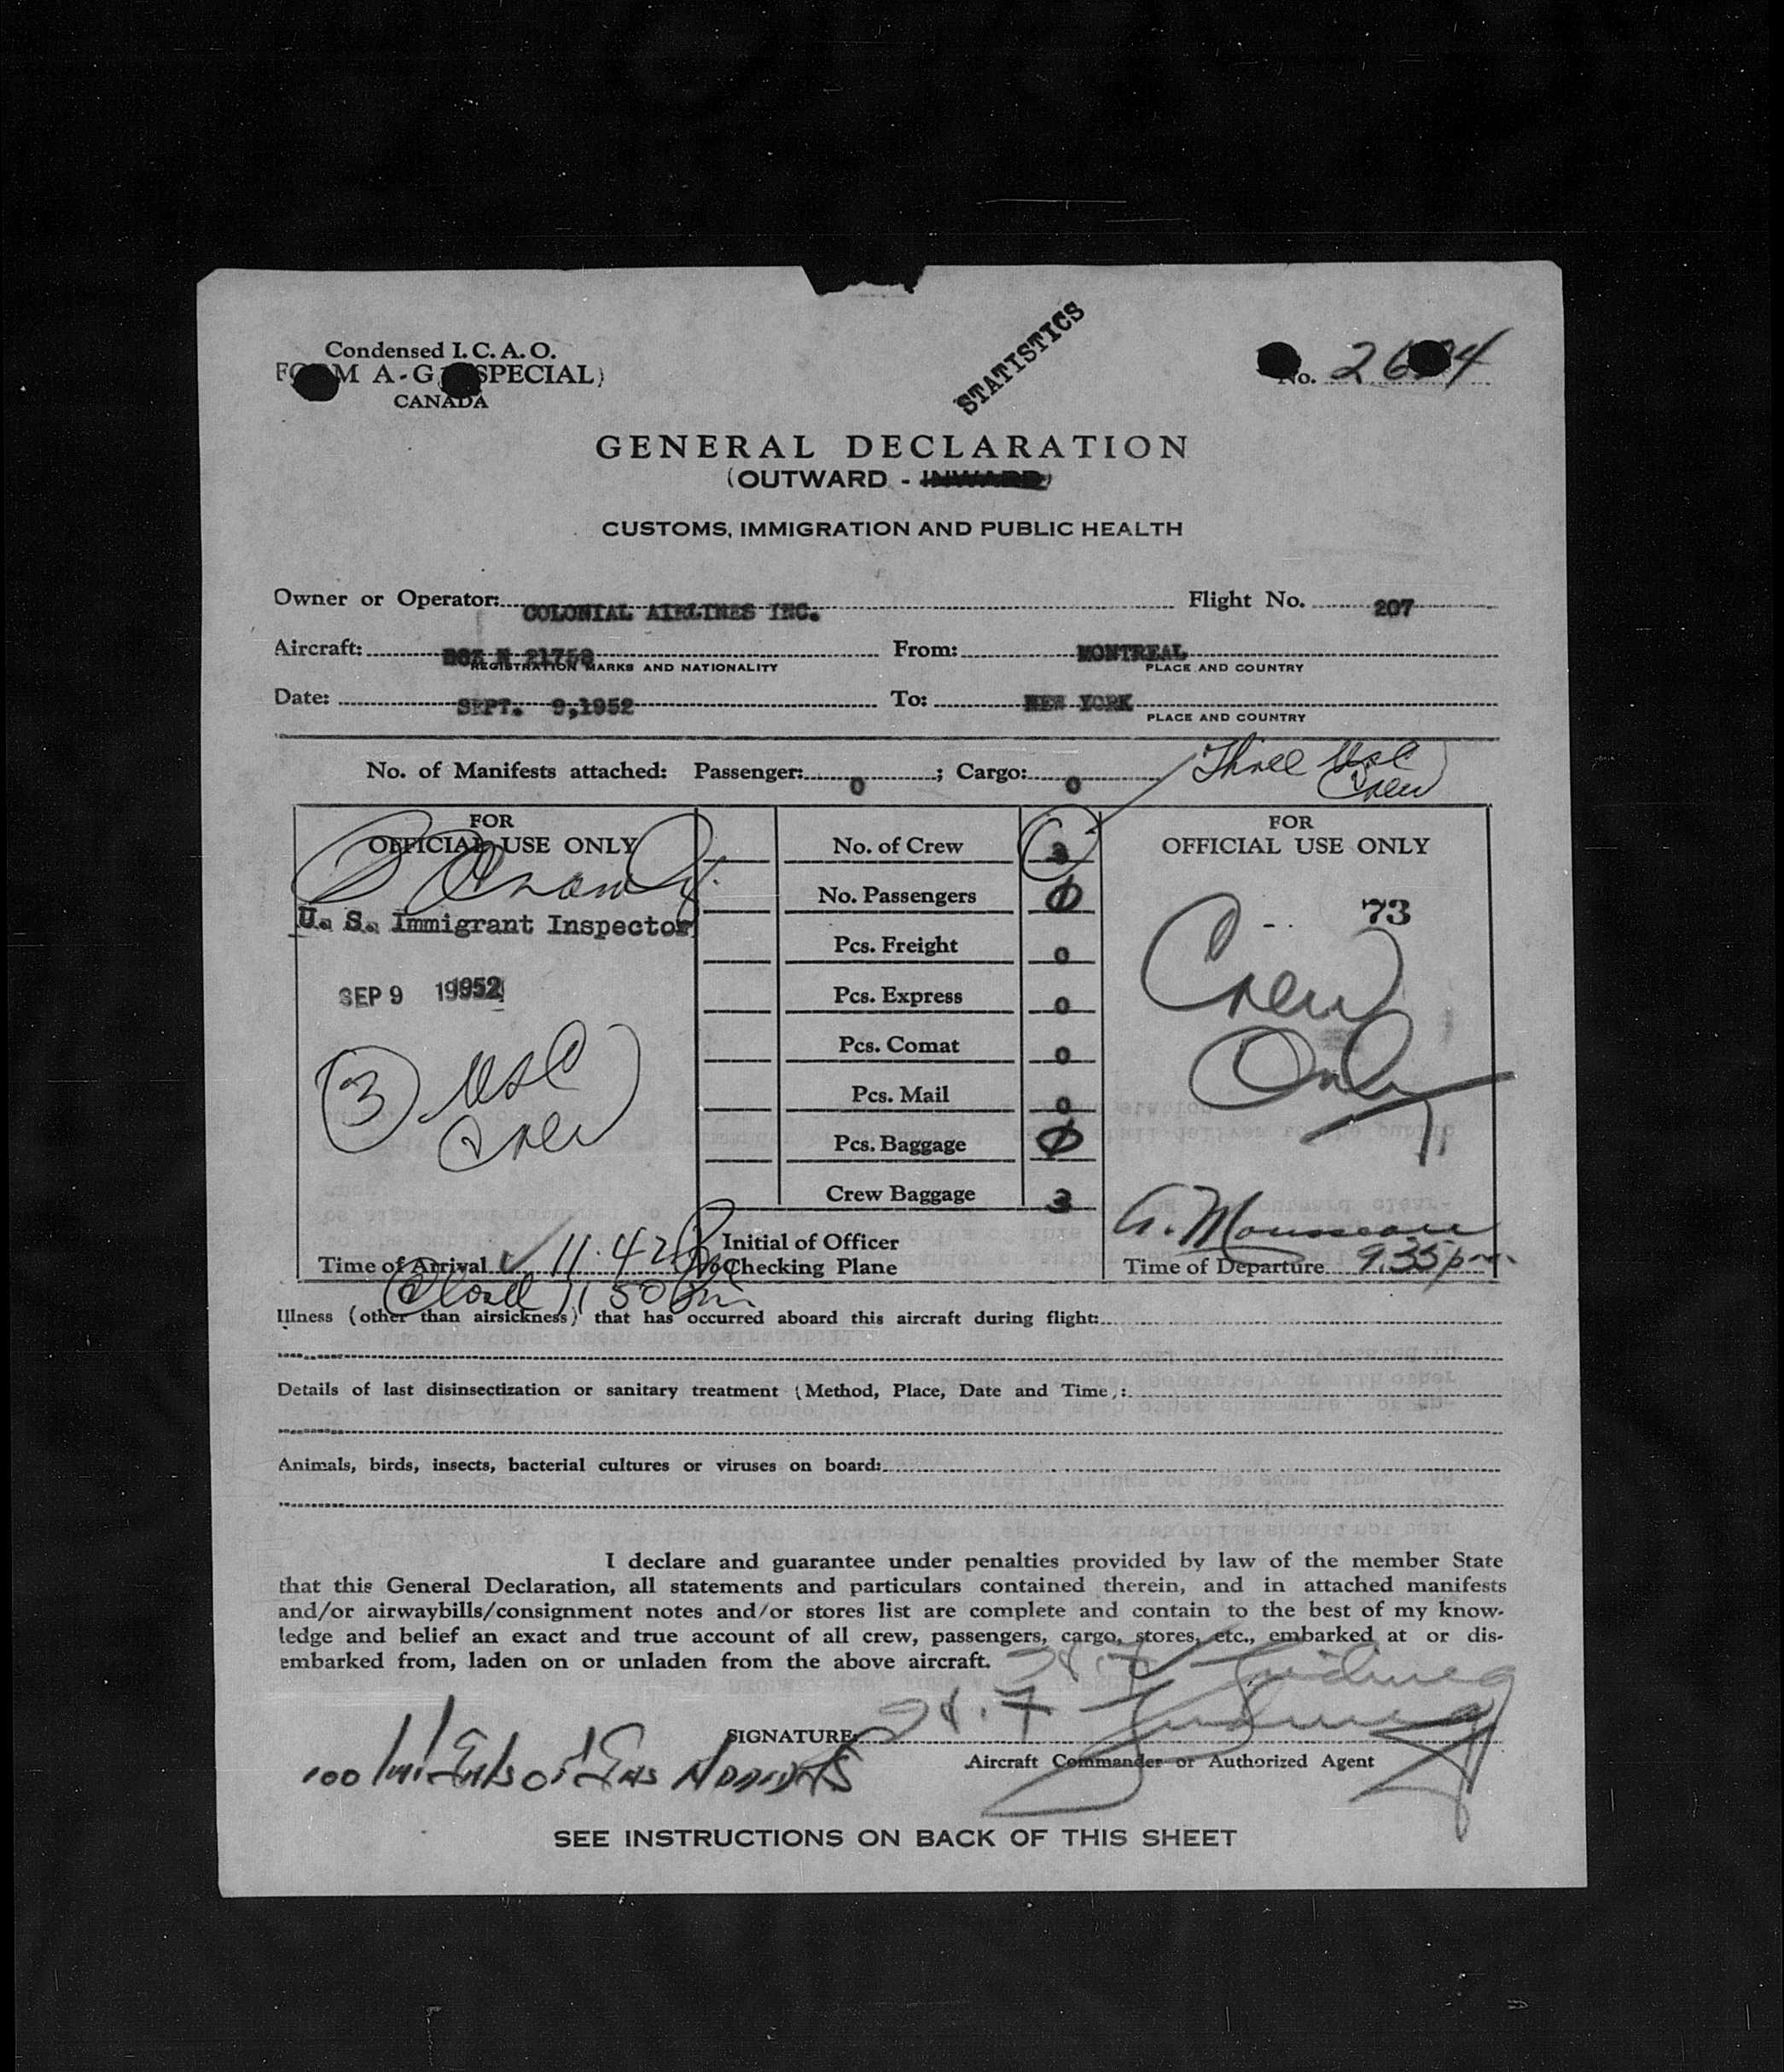 Condensed I. C. A. O.
FORM A-G (SPECIAL)
CANADA
STATISTICS
No. 26 4
GENERAL DECLARATION
(OUTWARD - INWARD)
CUSTOMS, IMMIGRATION AND PUBLIC HEALTH
Owner or Operator: COLONIAL AIRLINES INC. Flight No. 207
Aircraft: N 21758 From: MONTREAL
REGISTRATION MARKS AND NATIONALITY PLACE AND COUNTRY
Date: SEPT. 9,1952 To: NEW YORK
PLACE AND COUNTRY
No. of Manifests attached: Passenger: 0 ; Cargo: 0 Three USC
Crew
FOR
OFFICIAL USE ONLY
U. S. Immigrant Inspector
SEP 9 1952
3 USC
Crew
Time of Arrival 11.42 Pm
Closed 11 50 Pm
No. of Crew 3
No. Passengers 0
Pcs. Freight 0
Pcs. Express 0
Pcs. Comat 0
Pcs. Mail 0
Pcs. Baggage 0
Crew Baggage 3
Initial of Officer
Checking Plane
FOR
OFFICIAL USE ONLY
73
Crew
Only
A. Mousseau
Time of Departure 9.35 pm
Illness (other than airsickness) that has occurred aboard this aircraft during flight:
Details of last disinsectization or sanitary treatment (Method, Place, Date and Time):
Animals, birds, insects, bacterial cultures or viruses on board:
I declare and guarantee under penalties provided by law of the member State
that this General Declaration, all statements and particulars contained therein, and in attached manifests
and/or airwaybills/consignment notes and/or stores list are complete and contain to the best of my know-
ledge and belief an exact and true account of all crew, passengers, cargo, stores, etc., embarked at or dis-
embarked from, laden on or unladen from the above aircraft.
SIGNATURE:
Aircraft Commander or Authorized Agent
100
SEE INSTRUCTIONS ON BACK OF THIS SHEET